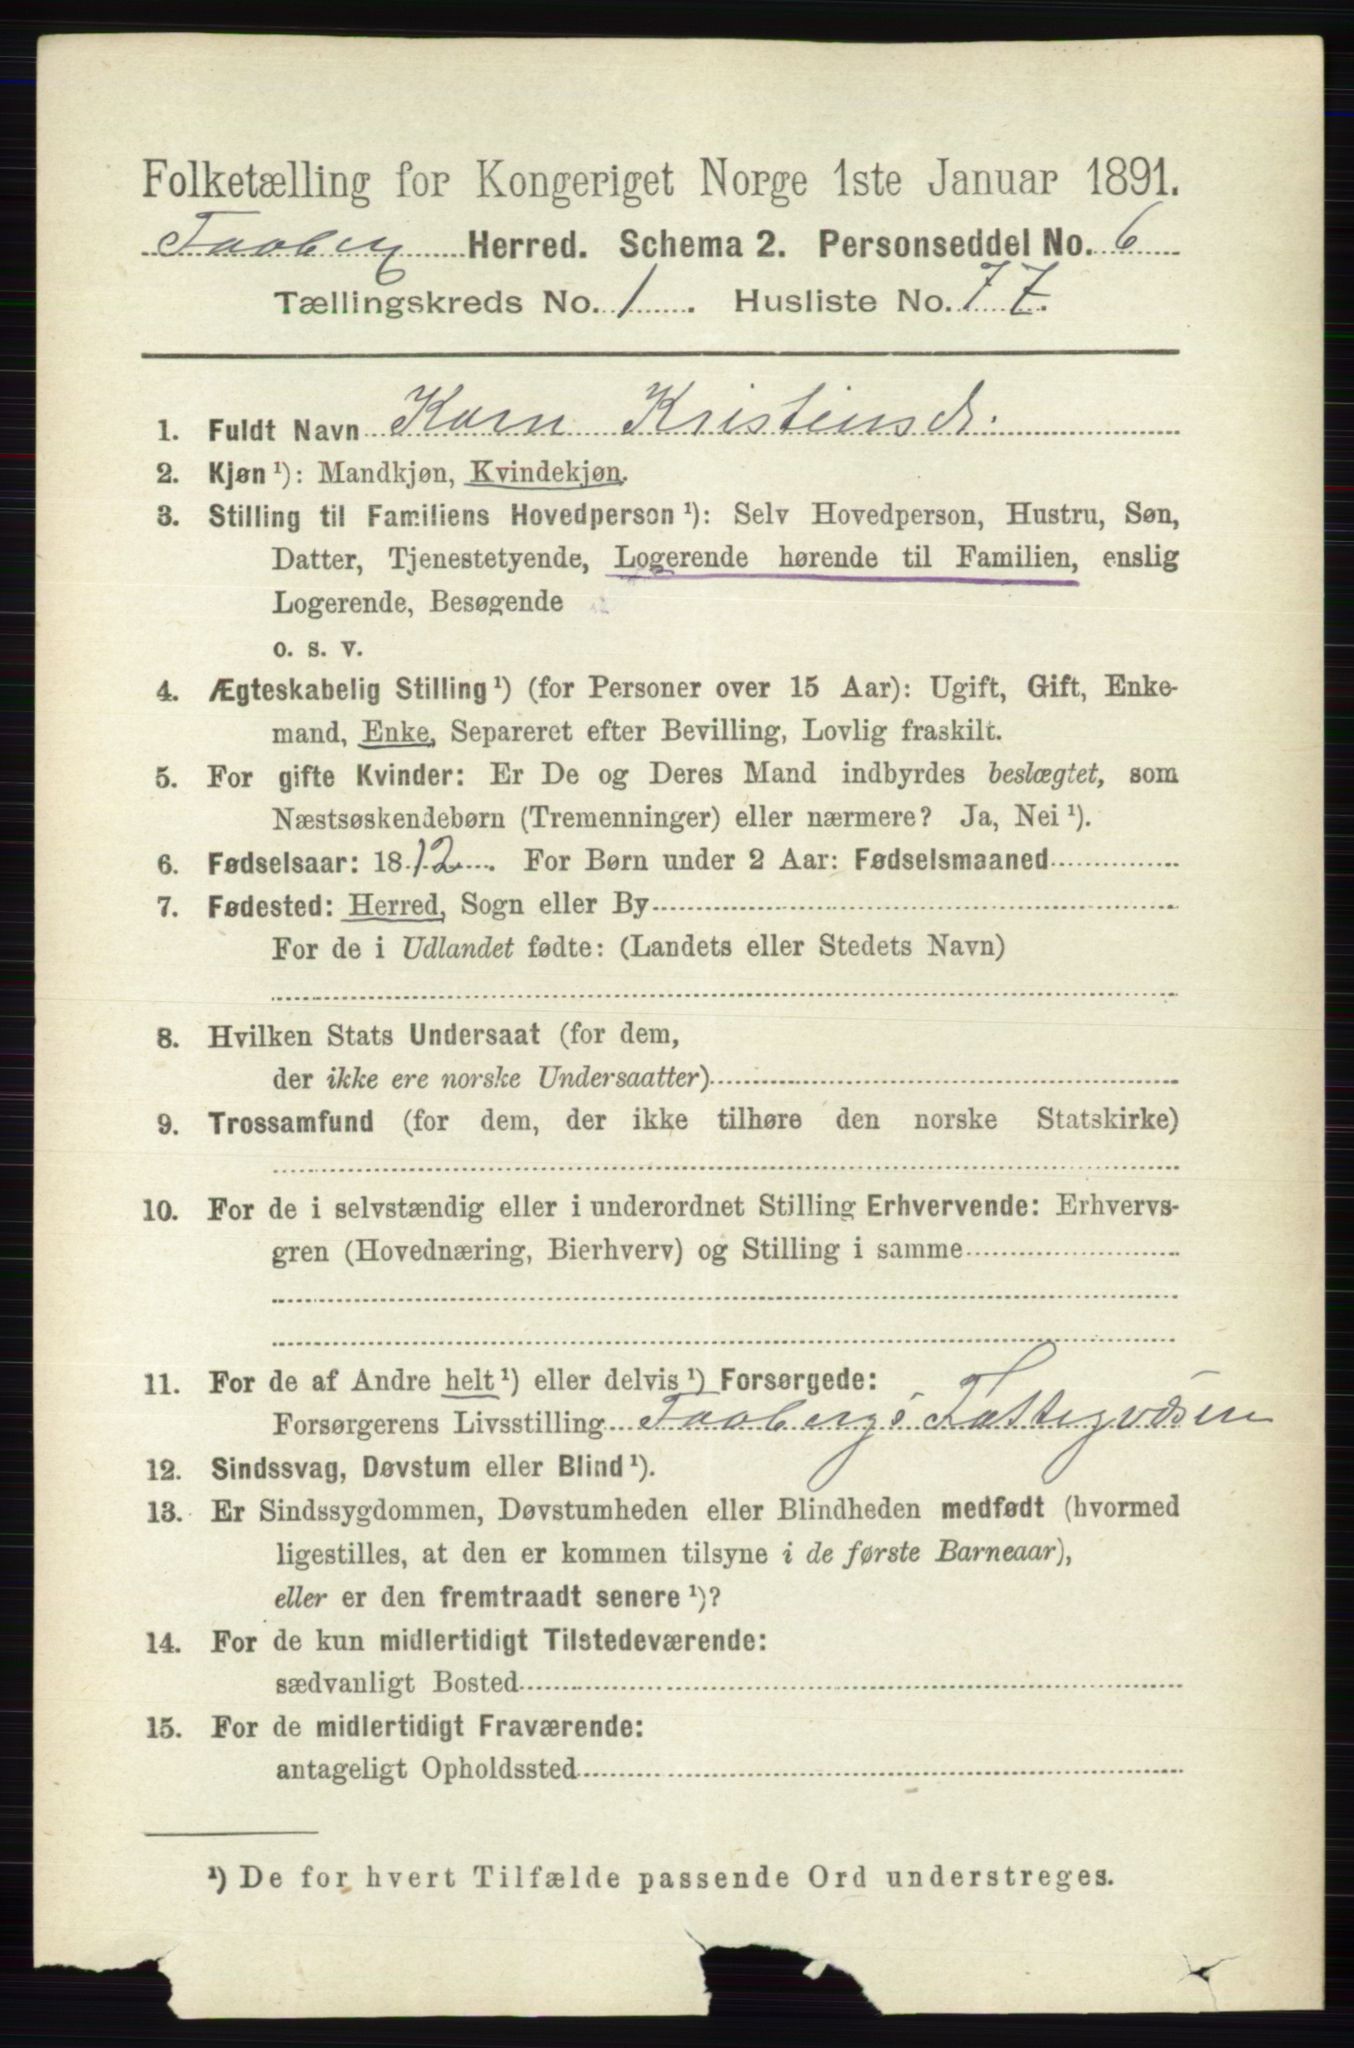 Folketælling for Kongeriget Norge 1ste Januar 1891.
Faaberg Herred. Schema 2. Personseddel No. 6
Tællingskreds No. 1. Husliste No. 77.
1. Fuldt Navn Karn Kristensdr.
2. Kjøn ¹): Mandkjøn, Kvindekjøn.
3. Stilling til Familiens Hovedperson ¹): Selv Hovedperson, Hustru, Søn,
Datter, Tjenestetyende, Logerende hørende til Familien, enslig
Logerende, Besøgende
o. s. v.
4. Ægteskabelig Stilling ¹) (for Personer over 15 Aar): Ugift, Gift, Enke-
mand, Enke, Separeret efter Bevilling, Lovlig fraskilt.
5. For gifte Kvinder: Er De og Deres Mand indbyrdes beslægtet, som
Næstsøskendebørn (Tremenninger) eller nærmere? Ja, Nei ¹).
6. Fødselsaar: 1812. For Børn under 2 Aar: Fødselsmaaned
7. Fødested: Herred, Sogn eller By
For de i Udlandet fødte: (Landets eller Stedets Navn)
8. Hvilken Stats Undersaat (for dem,
der ikke ere norske Undersaatter)
9. Trossamfund (for dem, der ikke tilhøre den norske Statskirke)
10. For de i selvstændig eller i underordnet Stilling Erhvervende: Erhvervs-
gren (Hovednæring, Bierhverv) og Stilling i samme
11. For de af Andre helt ¹) eller delvis ¹) Forsørgede:
Forsørgerens Livsstilling Faabergs Fattigvæsen
12. Sindssvag, Døvstum eller Blind ¹).
13. Er Sindssygdommen, Døvstumheden eller Blindheden medfødt (hvormed
ligestilles, at den er kommen tilsyne i de første Barneaar),
eller er den fremtraadt senere ¹)?
14. For de kun midlertidigt Tilstedeværende:
sædvanligt Bosted
15. For de midlertidigt Fraværende:
antageligt Opholdssted
¹) De for hvert Tilfælde passende Ord understreges.